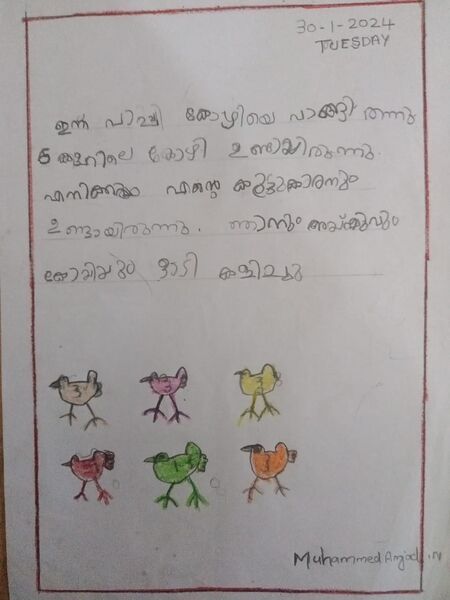 30-1-2024
TUESDAY
ഇന്ന് പാപ്പി കോഴിയെ വാങ്ങി തന്നു
6 കളറിലെ കോഴി ഉണ്ടായിരുന്നു.
എനിക്കും എന്റെ കൂട്ടുകാരനും
ഉണ്ടായിരുന്നു. ഞാനും അപ്പുവും
കോഴിയും ഓടി കളിച്ചു
Muhammed Amjad . N